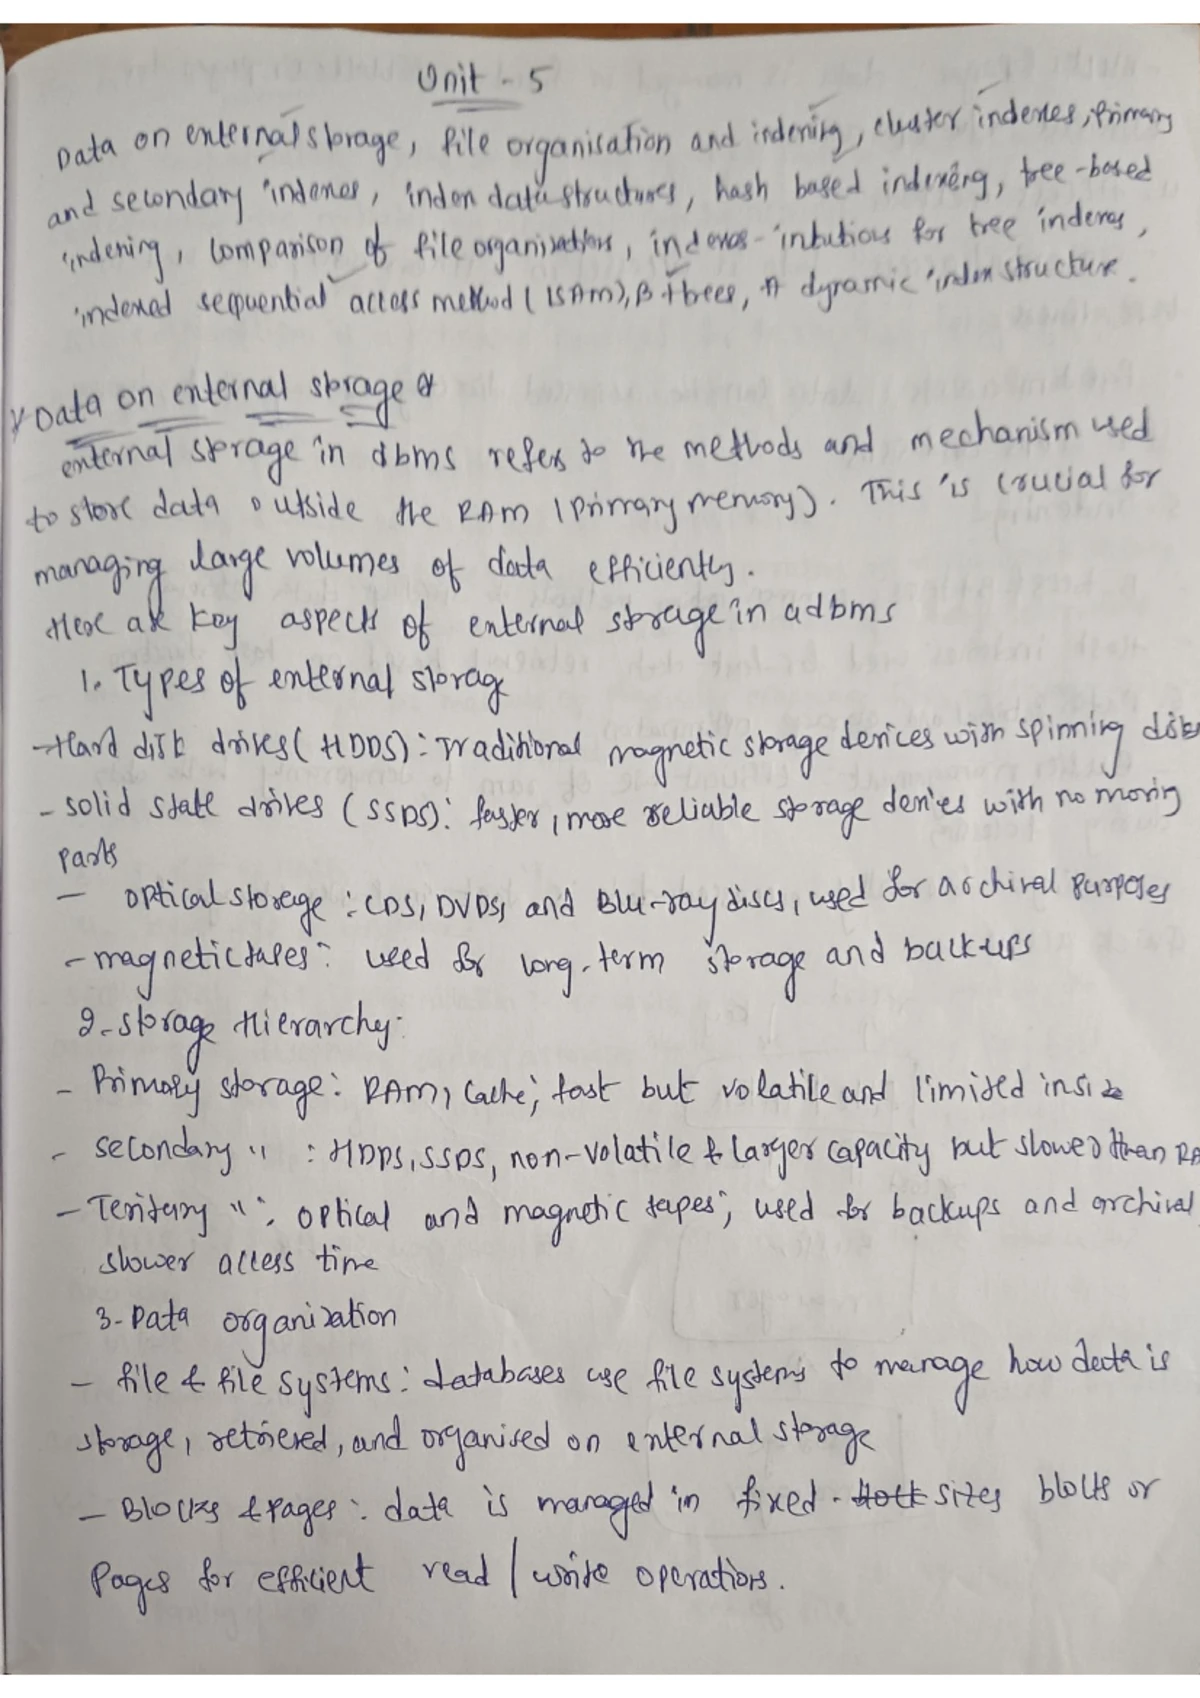 Unit - 5
Data on external storage, file organisation and indexing, cluster indexes, Primary
and secondary indexes, index data structures, hash based indexing, tree-based
indexing, comparison of file organisations, indexes - intutions for tree indexes,
indexed sequential access method (ISAM), B+trees, A dynamic index structure.
Data on external storage
external storage in dbms refers to the methods and mechanism used
to store data outside the RAM (Primary memory). This is crucial for
managing large volumes of data efficiently.
Here are key aspects of external storage in adbms
1. Types of external storag
- Hard disk drives (HDDS): Traditional magnetic storage devices with spinning disks
- solid state drives (SSDs): faster, more reliable storage devies with no moving
parts
- optical storage : CDS, DVDs, and Blu-ray discs, used for archival purposes
- magnetic tapes: used for long-term storage and back-ups
2. storage Hierarchy:
- Primary storage: RAM, Cache; fast but volatile and limited in size
- secondary " : HDDS, SSDS, non-volatile & larger capacity but slower than RA
- Teritary " : optical and magnetic tapes; used for backups and archival
slower access time
3- Data organization
- file & file systems: databases use file systems to manage how data is
storage, retrieved, and organised on external storage
- Blocks & pages: data is managed in fixed - sizes blocks or
Pages for efficient read / write operations.